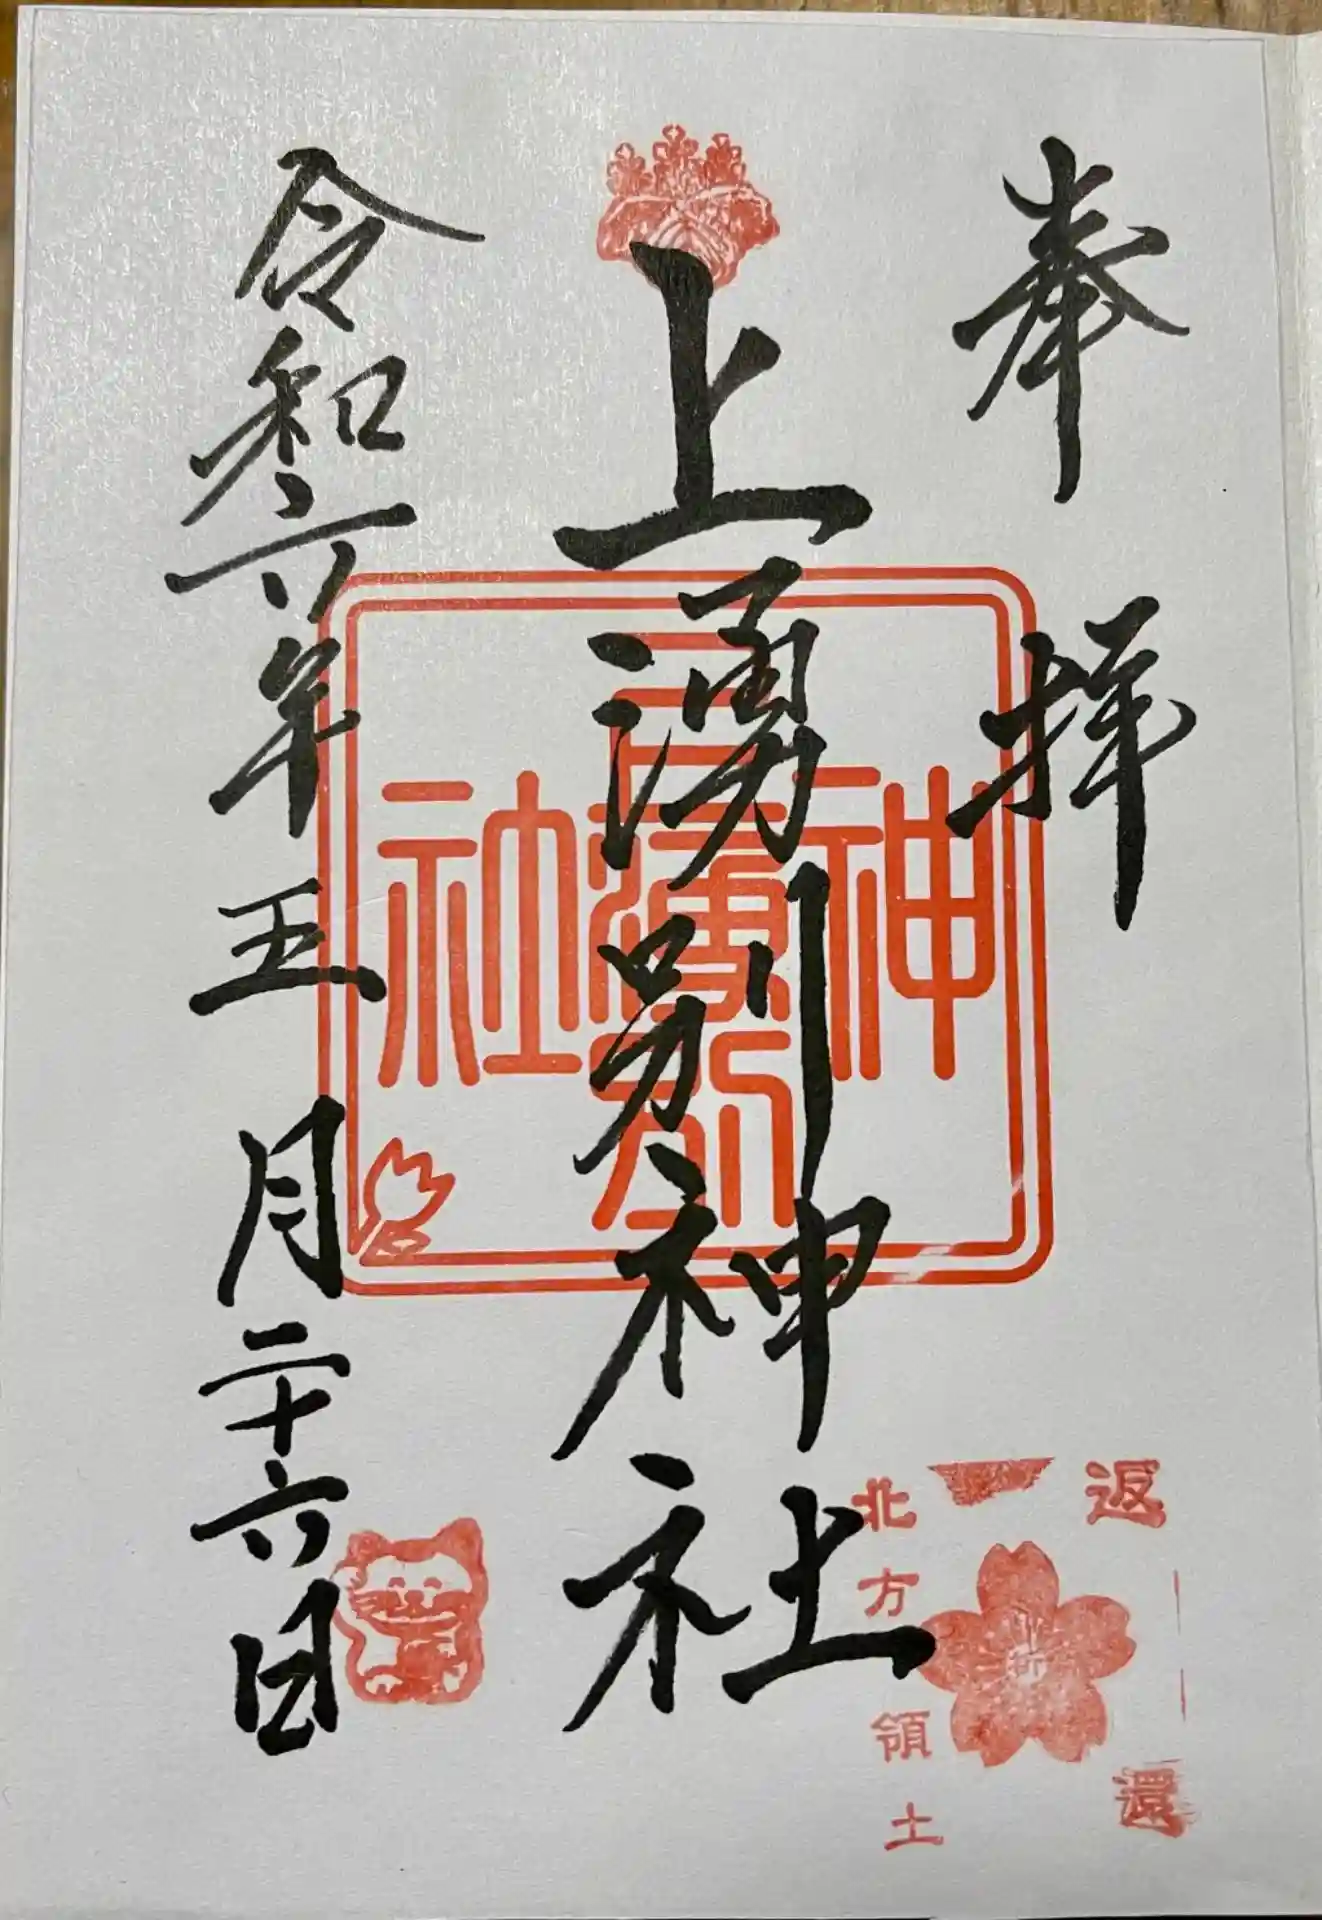 奉拝
上湧別神社
令和六年五月二十六日
上湧別
神社
返還
北方領土